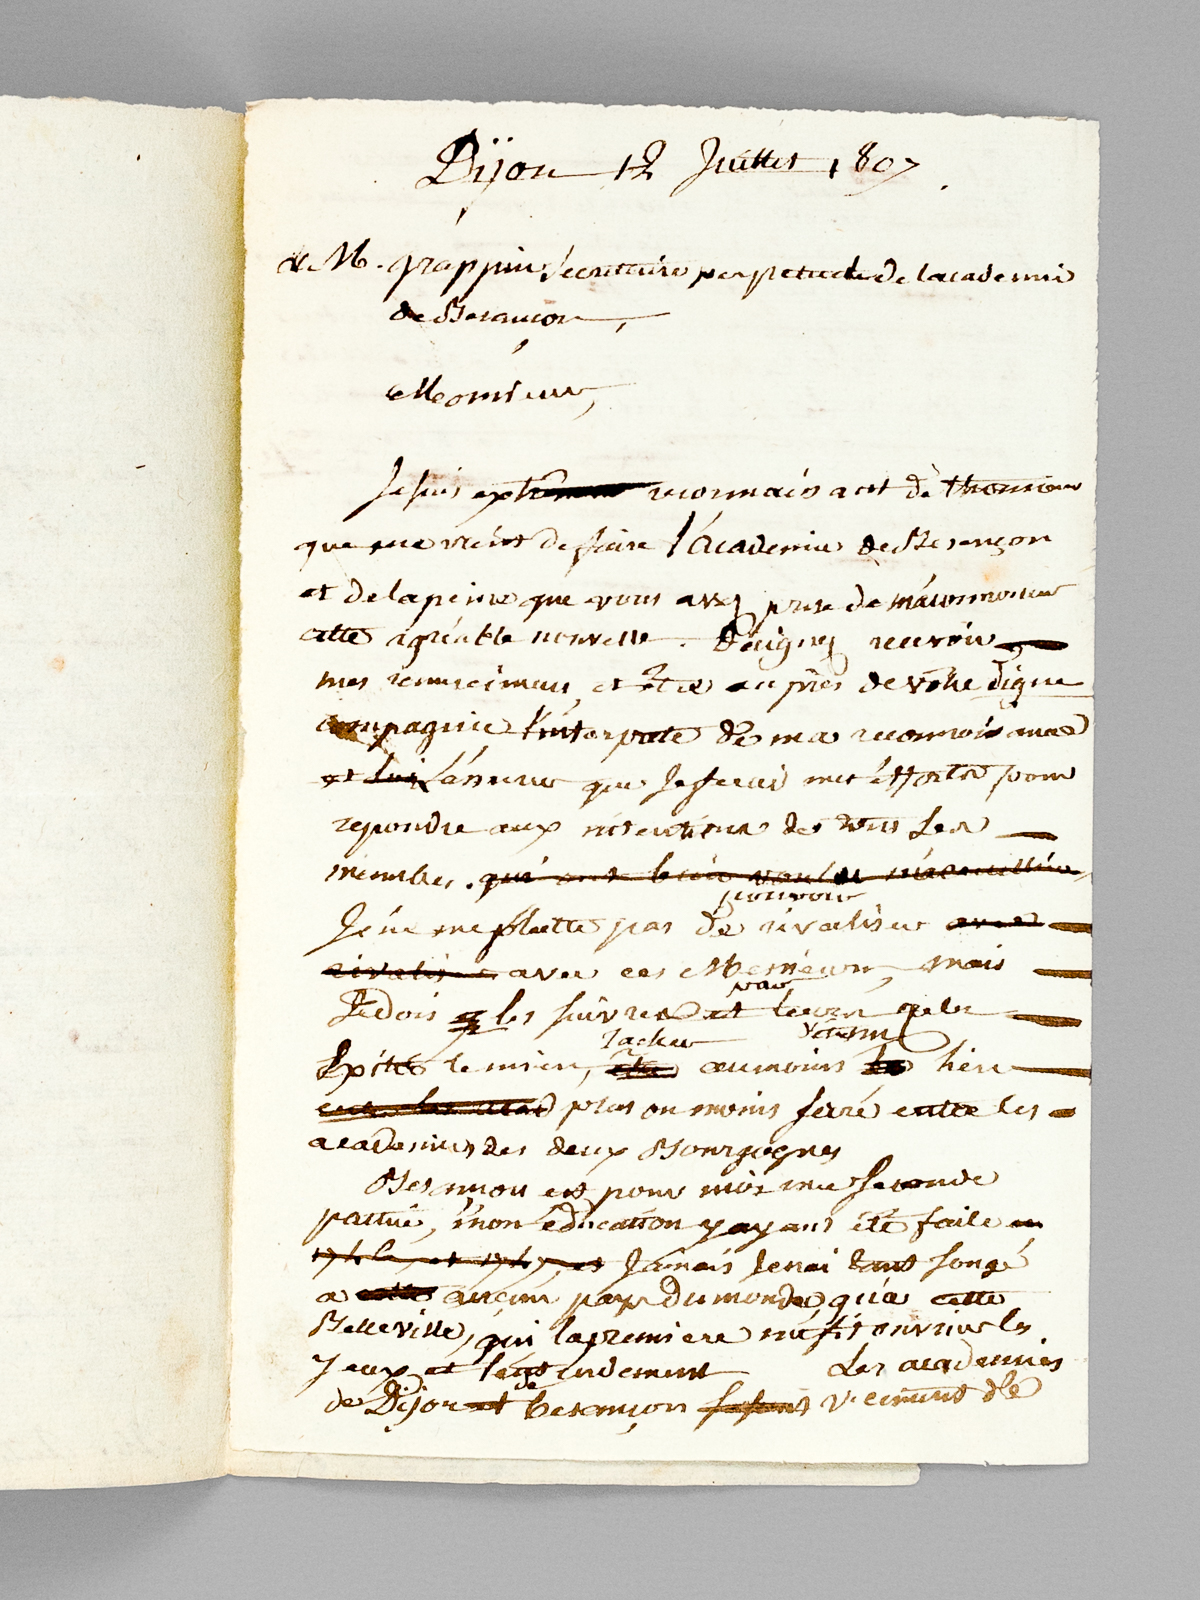 Dijon 12 Juillet 1807.
a M. grappin Secretaire perpetuel de lacademie
de Besançon,
Monsieur,
Je suis reconnaissant de lhonneur
que me vient de faire l'académie de Besançon
et de la peine que vous avez prise de m'annoncer
cette agréable nouvelle. Daignez recevoir
mes remerciemens, et être auprès de votre digne
compagnie l'interprete de ma reconnoissance
et lui l'assurer que Je ferai mes efforts pour
repondre aux intentions de tous Les
membres. qui ont bien voulu m'accueillir
pouvoir
Je ne me flatte pas de rivaliser avec
rivaliser avec ces Messieurs, mais
par
Je dois les suivre et leur zele
tacher
Excite le mien, au moins lien
plus ou moins serré entre les
academies des deux Bourgognes
Besançon est pour moi une seconde
patrie, mon éducation y ayant été faite en
et Jamais Je n'ai tant songé
a cette aucun pays du monde, qu'a cette
Belleville, qui la premiere m'a fait ouvrir les
yeux et l'entendement Les academies
de
de Dijon et besançon viennent de